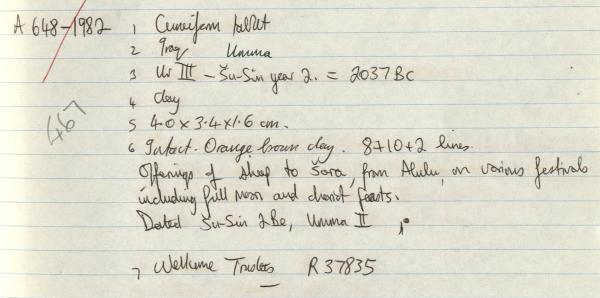 A 648-1982 1 Cuneiform tablet
2 Iraq Umma
3 Ur III - Šu-Sin year 2. = 2037 BC
4 clay
467
5 4.0 x 3.4 x 1.6 cm.
6 Intact. Orange brown clay. 8+10+2 lines.
Offerings of sheep to Šara, from Alulu, on various festivals
including full moon and chariot feasts.
Dated Šu-Sin 2Be, Umma II
7 Wellcome Trustees R 37835